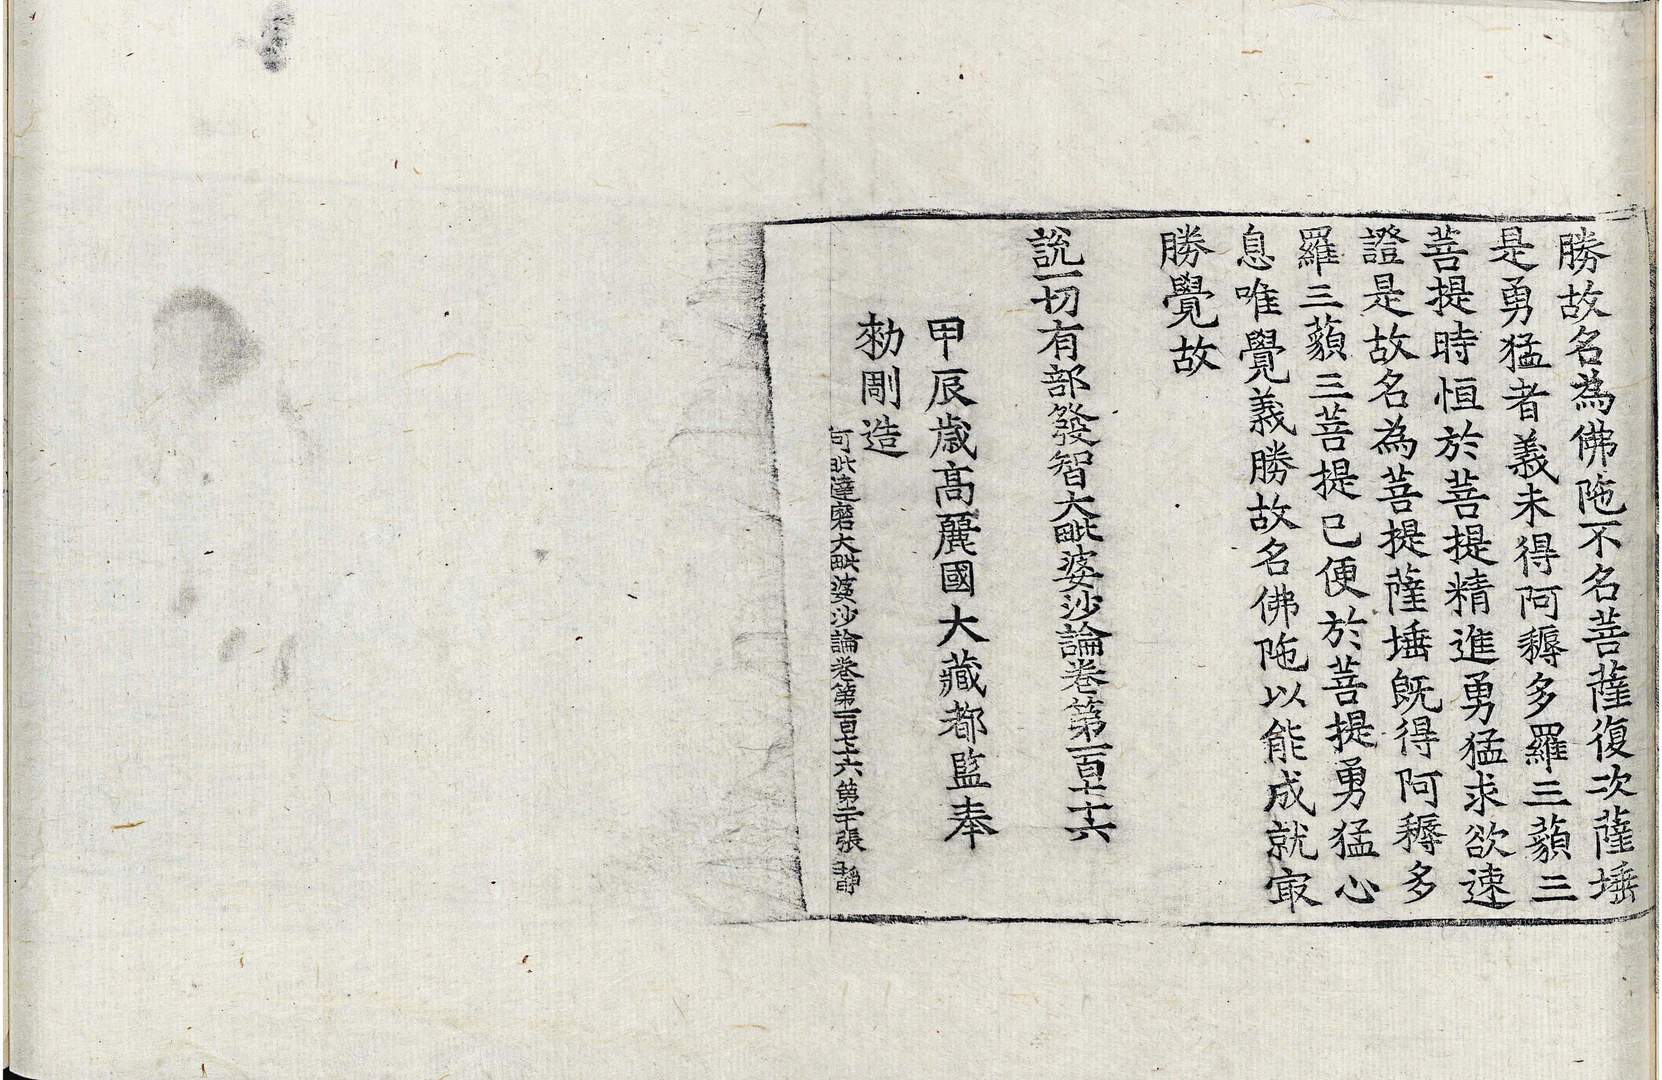 勝故名為佛陁不名菩薩復次薩埵
是勇猛者義未得阿耨多羅三藐三
菩提時恒於菩提精進勇猛求欲速
證是故名為菩提薩埵旣得阿耨多
羅三藐三菩提已便於菩提勇猛心
息唯覺義勝故名佛陁以能成就㝡
勝覺故
說一切有部發智大毗婆沙論卷第一百七十六
甲辰歲高麗國大藏都監奉
勑彫造
阿毗達磨大毗婆沙論卷第一百七十六 第二十張 靜